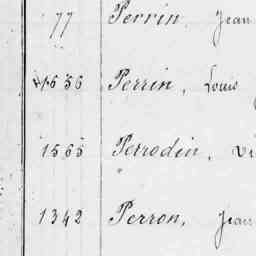 77 Perrin, Jean
1656 Perrin, Louis
1565 Perrodin, Vi
1342 Perron, Jean